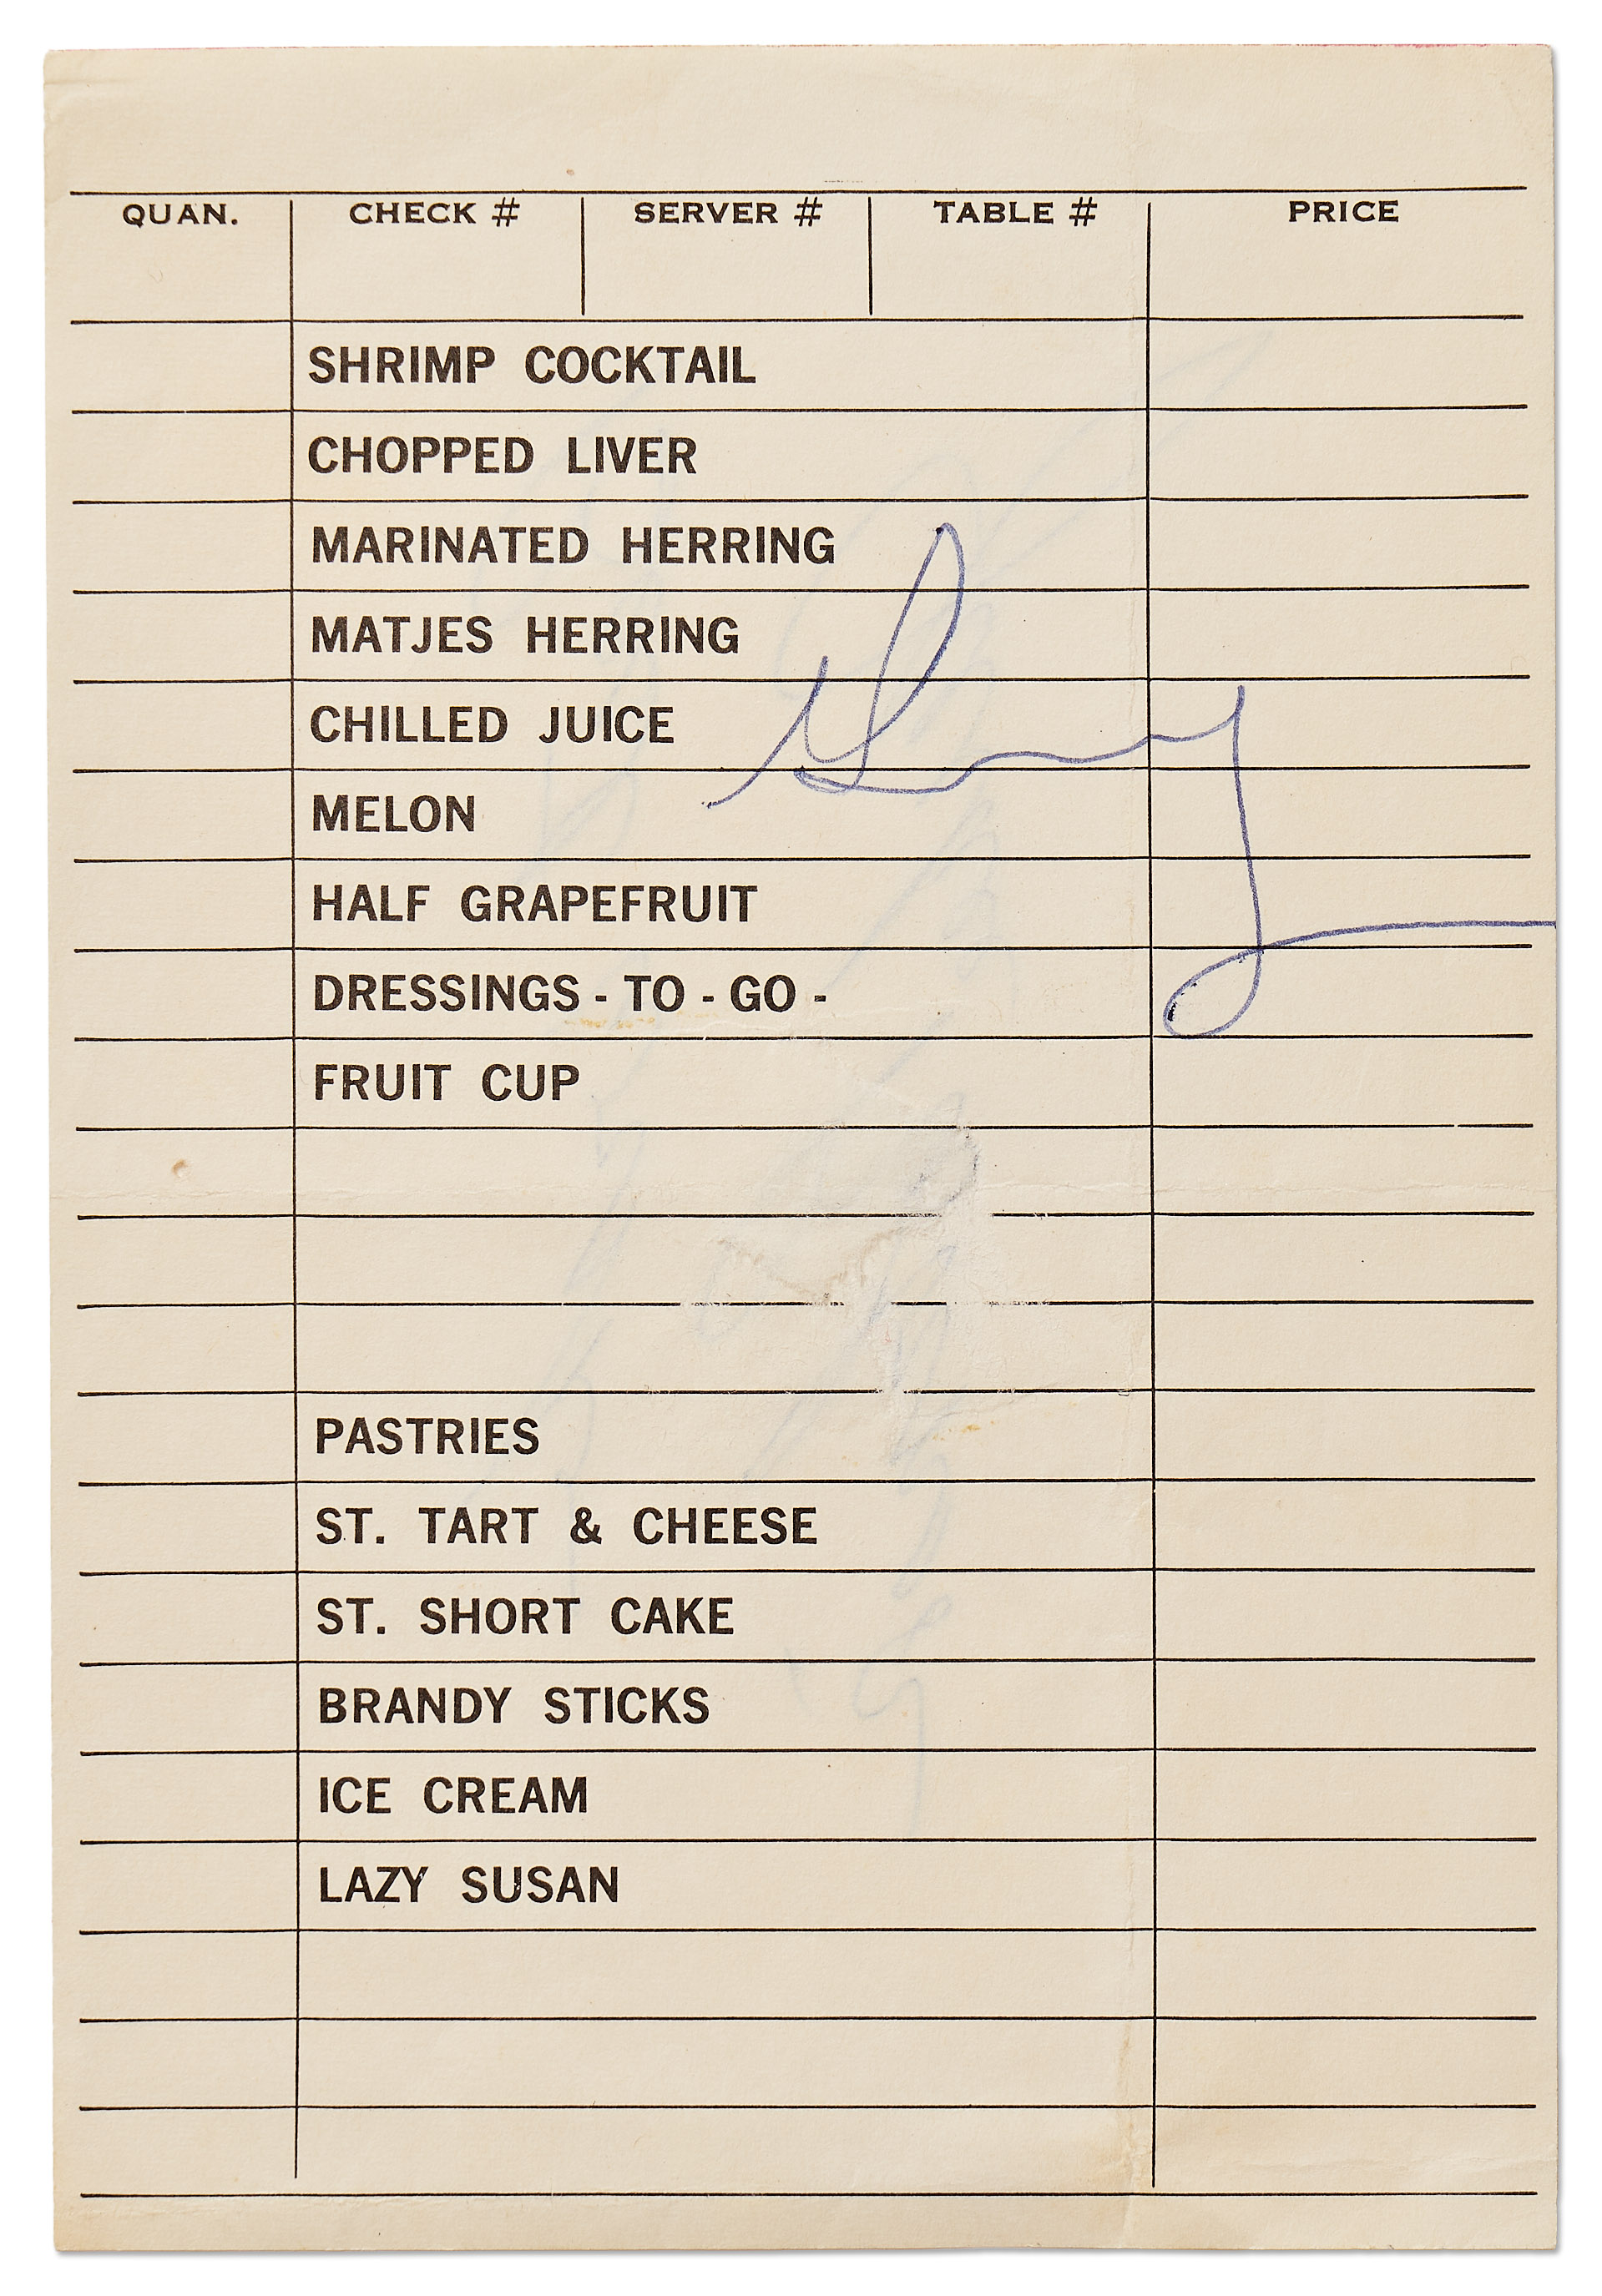 QUAN. CHECK # SERVER # TABLE # PRICE
SHRIMP COCKTAIL
CHOPPED LIVER
MARINATED HERRING
MATJES HERRING
CHILLED JUICE
MELON
HALF GRAPEFRUIT
DRESSINGS - TO - GO -
FRUIT CUP
PASTRIES
ST. TART & CHEESE
ST. SHORT CAKE
BRANDY STICKS
ICE CREAM
LAZY SUSAN